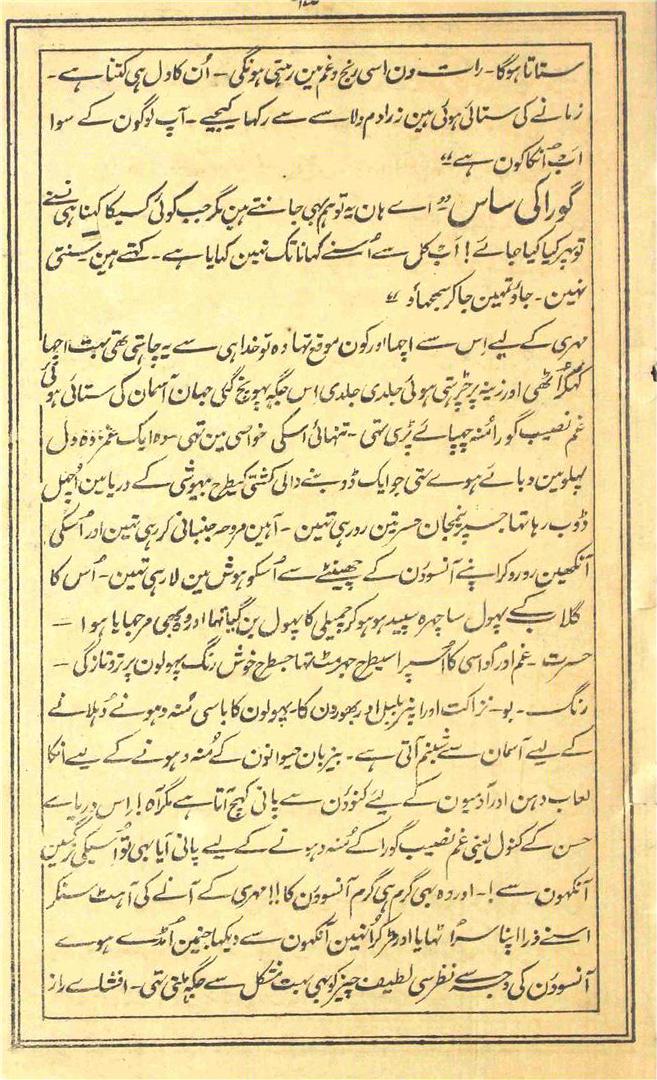 ستاتا ہوگا۔ رات دن اسی رنج وغم مین رہتی ہونگی۔ اُن کا دل ہی کتنا ہے۔
زمانے کی ستائی ہوئی ہین ذرا دم دلاسے سے رکھا کیجیے۔ آپ لوگون کے سوا
اب اُنکا کون ہے“
گورا کی ساس۔ ”اے ہان یہ تو ہم بھی جانتے ہین مگر جب کوئی کسیکا کہنا بھی سُنے
تو پھر کیا کیا جائے! اب کل سے اُسنے کھانا تک نہین کھایا ہے۔ کہتے ہین سنتی
نہین۔ جاؤ تمھین جا کر سمجھاؤ“
مہری کے لیے اِس سے اچھا اور کون موقع تھا وہ تو خدا ہی سے یہ چاہتی تھی بہت اچھا
کہکر اُٹھی اور زینہ پر چڑہتی ہوئی جلدی جلدی اِس جگہ پہونچ گئی جہان آسمان کی ستائی ہوئی
غم نصیب گورا مُنہ چھپائے پڑی تھی۔ تنہائی اسکی خواصی مین تھی۔ وہ ایک غمزدہ دل
پہلو مین دبائے ہوے تھی جو ایک ڈوبنے والی کشتی کیطرح بیہوشی کے دریا مین اُچھل
ڈوب رہا تھا جسپر نیمجان حسرتین رو رہی تھین۔ آہین مروحہ جنبانی کر رہی تھین اور اُسکی
آنکھین رو رو کر اپنے آنسوؤن کے چھینٹے سے اُسکو ہوش مین لا رہی تھین۔ اُس کا
گلاب کے پھول سا چہرہ سپید ہو ہو کر چمیلی کا پھول بن گیا تھا اور وہ بھی مرجھایا ہوا۔
حسرت۔ غم اور اُداسی کا اُسپر اسیطرح جھرمٹ تھا جسطرح خوش رنگ پھولون پر تروتازگی۔
رنگ۔ بو۔ نزاکت اور اپنر بلبل اور بھورون کا۔ پھولون کا باسی مُنہ دھونے دُھلانے
کے لیے آسمان سے شبنم آتی ہے۔ بیزبان حیوانون کے مُنہ دھونے کے لیے انکا
لعاب دہن اور آدمیون کے لیے کنوؤن سے پانی کھچ آتا ہے مگر آہ! اِس دریاے
حسن کے کنول یعنی غم نصیب گورا کے مُنہ دھونے کے لیے پانی آیا بھی تو اُسیکی نرگسین
آنکھون سے!۔ اور وہ بھی گرم ہی گرم آنسوؤن کا!! مہری کے آنے کی آہٹ سنکر
اسنے ذرا اپنا سر اُٹھایا اور مڑ کر اُنھین آنکھون سے دیکھا جنمین اُمڈے ہوے
آنسوؤن کی وجہ سے نظر سی لطیف چیز کو بھی بہت مشکل سے جگہ ملتی تھی۔ افشاے راز